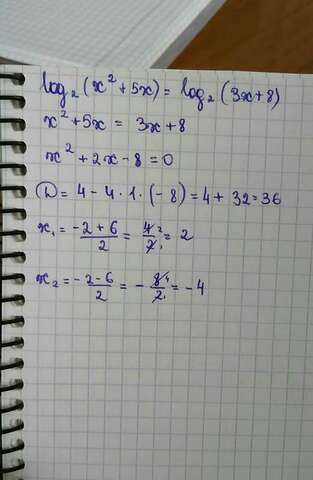 log₂(x² + 5x) = log₂(3x + 8)
x² + 5x = 3x + 8
x² + 2x - 8 = 0
D = 4 - 4 · 1 · (-8) = 4 + 32 = 36
x₁ = (-2 + 6)/2 = 4/2 = 2
x₂ = (-2 - 6)/2 = -8/2 = -4